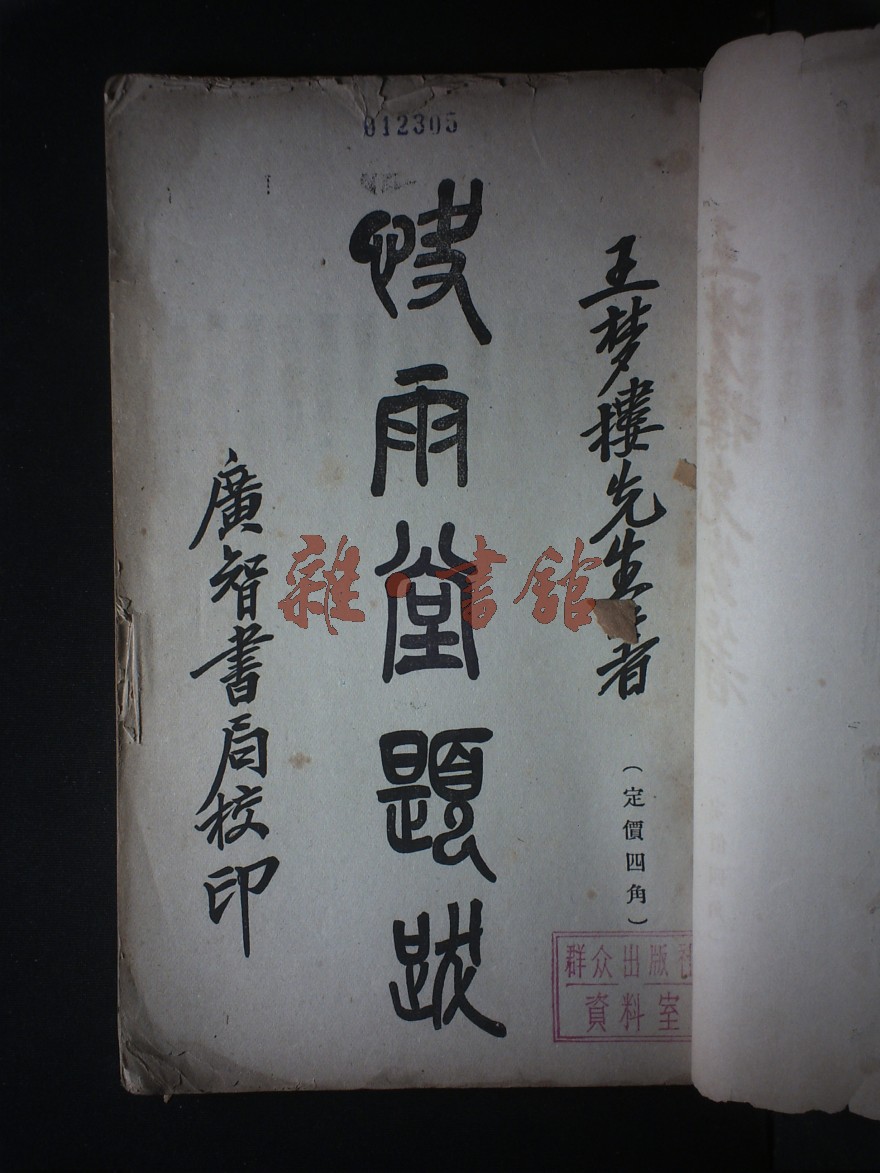 012305
王梦楼先生著者
快雨堂題跋
廣智書局校印
(定價四角)
群众出版社
資料室
雜·書館